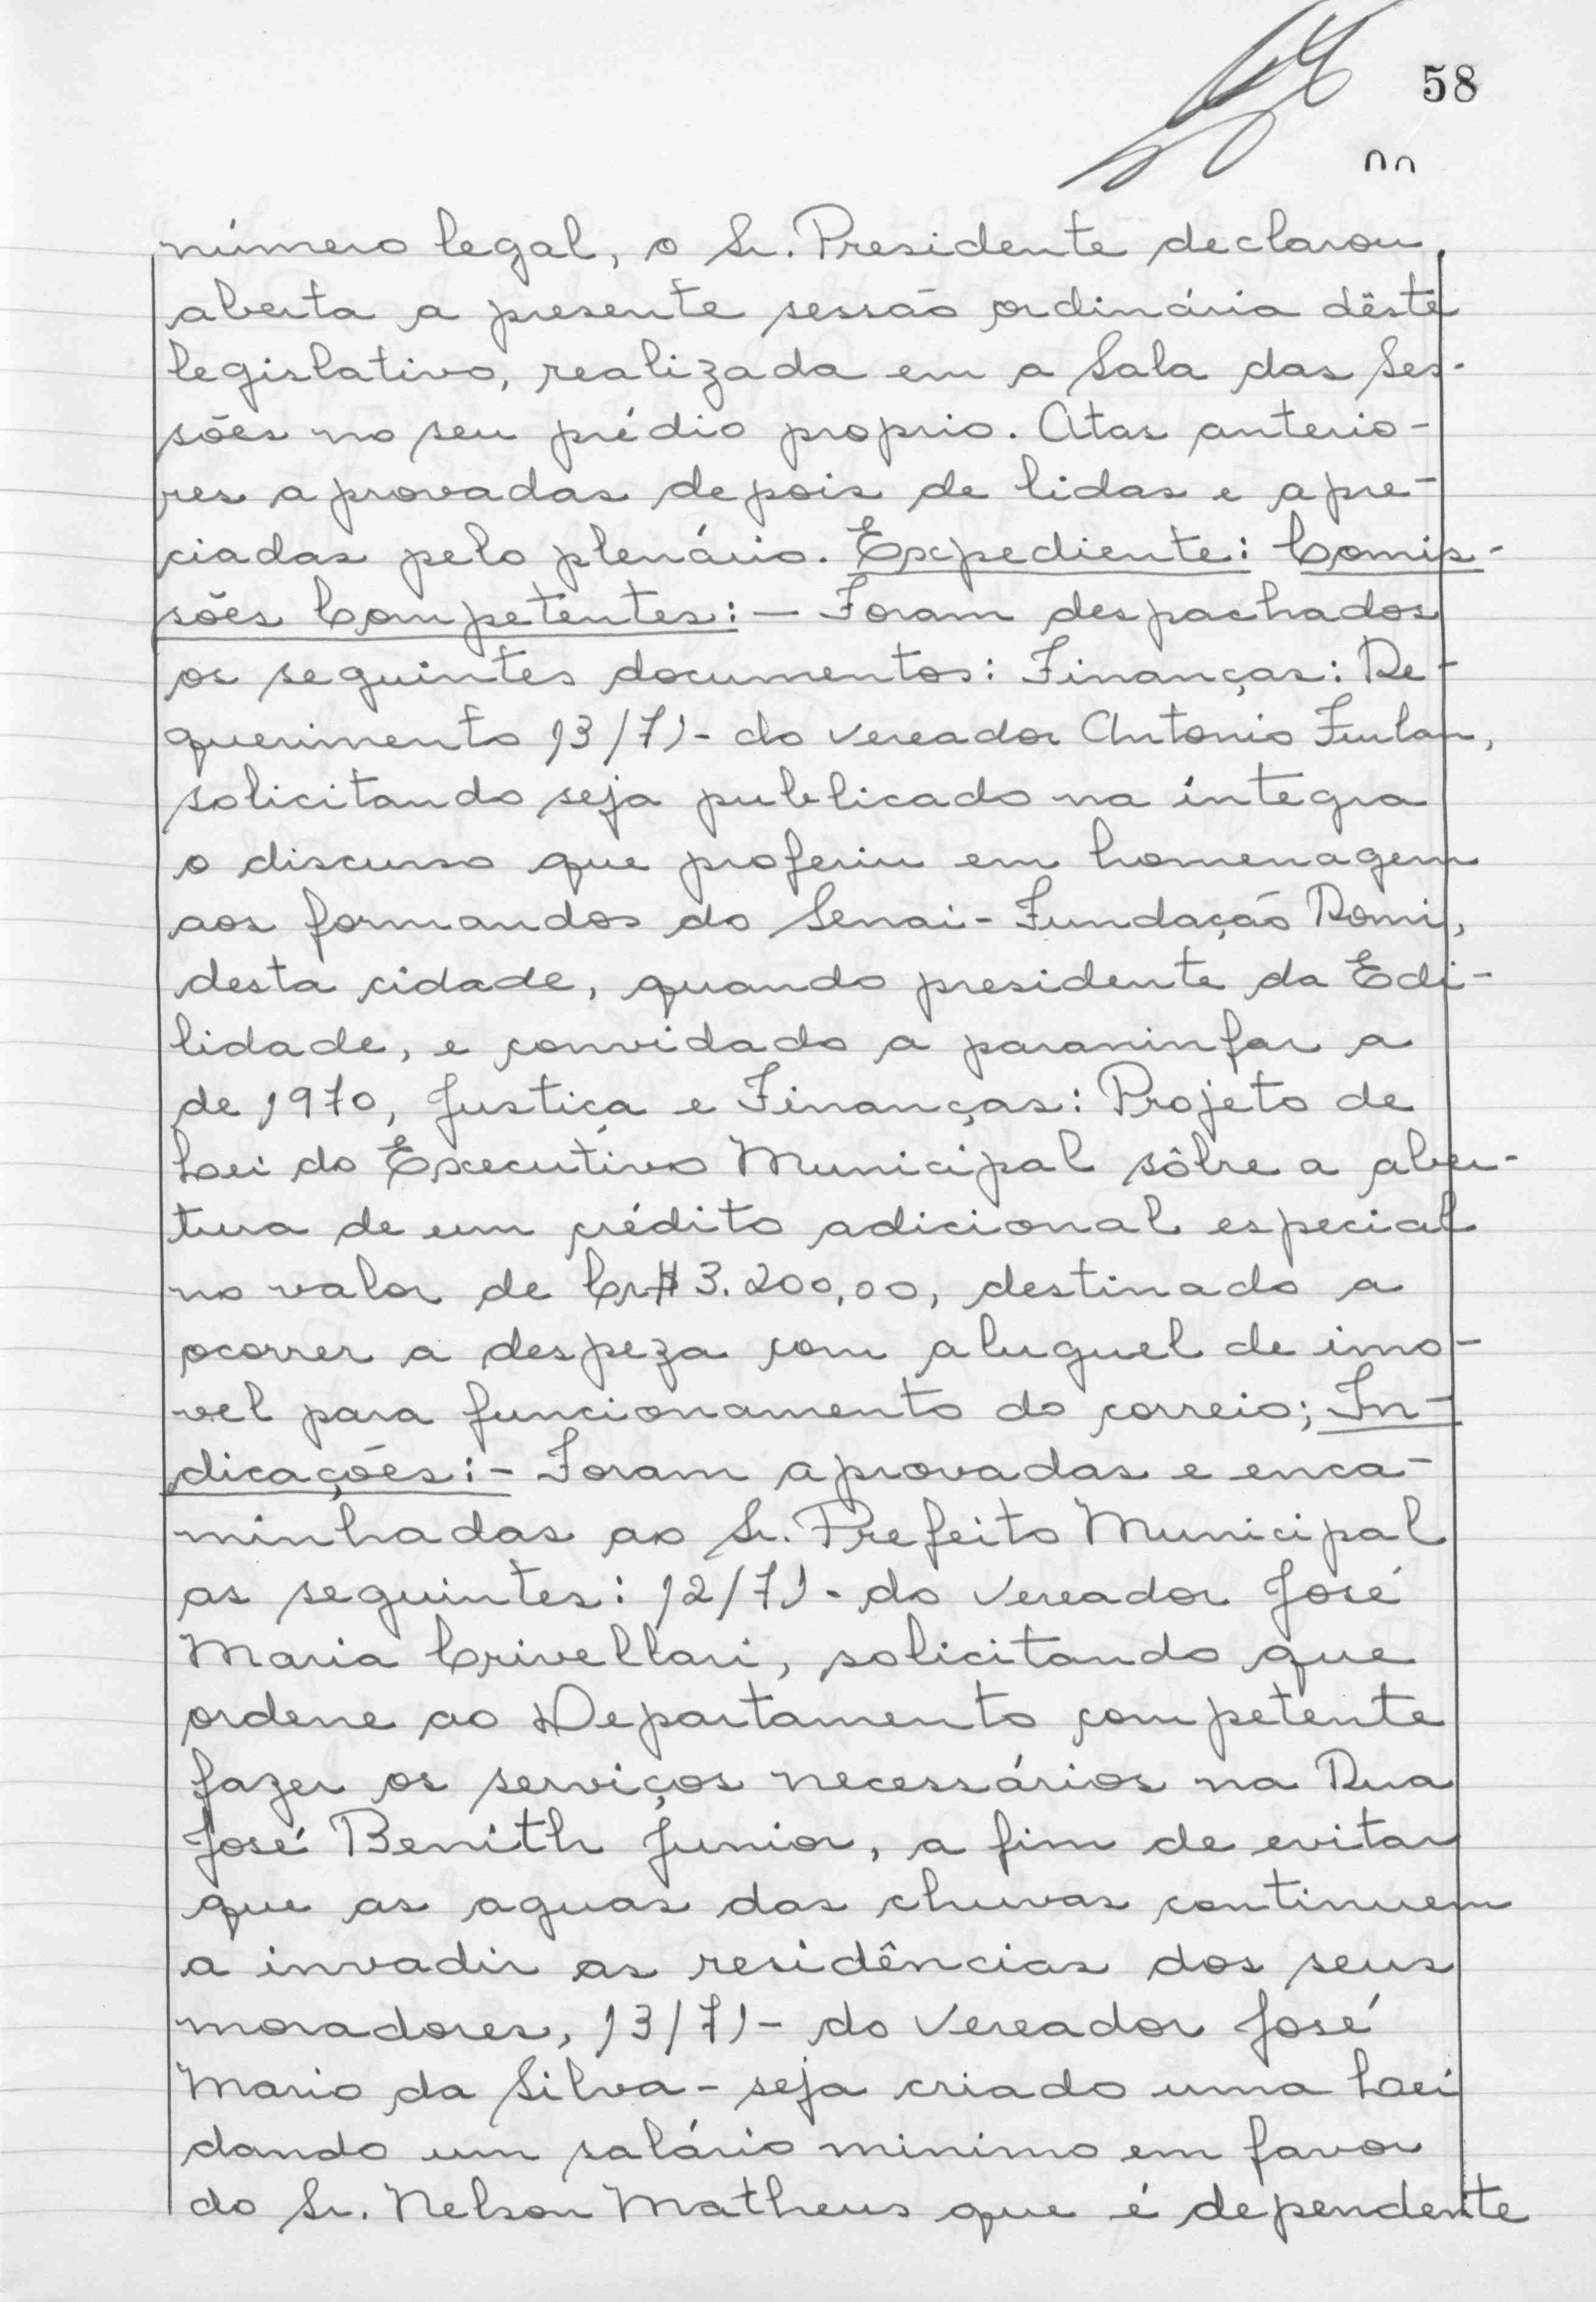 58
número legal, o Sr. Presidente declarou
aberta a presente sessão ordinária dêste
legislativo, realizada em a Sala das Ses-
sões no seu prédio proprio. Atas anterio-
res aprovadas depois de lidas e apre-
ciadas pelo plenário. Expediente: Comis-
sões Competentes: - Foram despachados
os seguintes documentos: Finanças: Re-
querimento 13/71- do vereador Antonio Furlan,
solicitando seja publicado na íntegra
o discurso que proferiu em homenagem
aos formandos do Senai - Fundação Romi,
desta cidade, quando presidente da Edi-
lidade, e convidado a paraninfar a
de 1970, Justiça e Finanças: Projeto de
Lei do Executivo Municipal sôbre a aber-
tura de um crédito adicional especial
no valor de Cr$ 3.200,00, destinado a
ocorrer a despeza com aluguel de imo-
vel para funcionamento do correio; In-
dicações: - Foram aprovadas e enca-
minhadas ao Sr. Prefeito Municipal
as seguintes: 12/71 - do vereador José
Maria Crivellari, solicitando que
ordene ao Departamento competente
fazer os serviços necessários na Rua
José Benith Junior, a fim de evitar
que as aguas das chuvas continuem
a invadir as residências dos seus
moradores, 13/71 - do Vereador José
Mario da Silva - seja criado uma Lei
dando um salário minimo em favor
do Sr. Nelson Matheus que é dependente